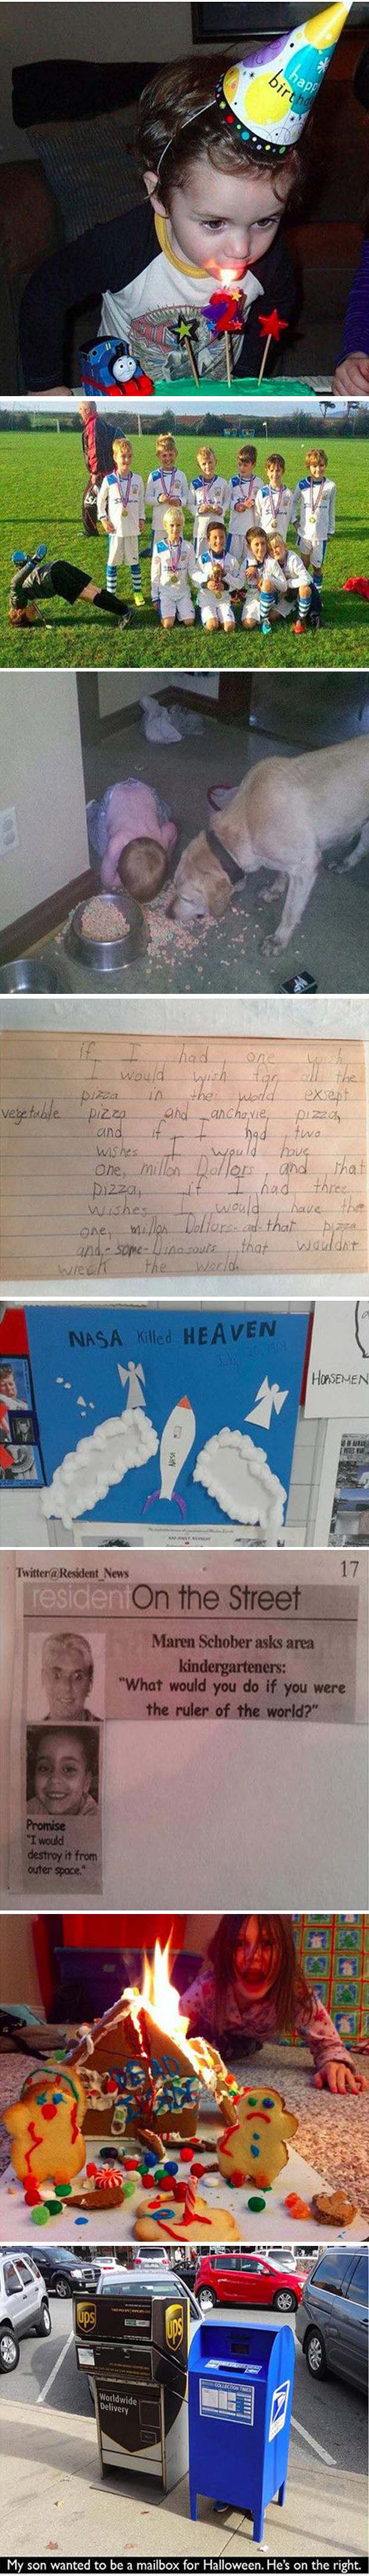 happy
birth
2
if I had one wish
I would wish for all the
pizza in the world except
vegetable pizza and anchovie pizza,
and if I had two
wishes I would have
one, millon Dollors and that
pizza, if I had three
wishes I would have the
one, millon Dollurs-ad-that pizza
and,-some-Dinosaurs that wouldn't
wreck the world.
NASA Killed HEAVEN
NASA
HORSEMEN
Twitter@Resident_News
17
residentOn the Street
Maren Schober asks area
kindergarteners:
"What would you do if you were
the ruler of the world?"
Promise
"I would
destroy it from
outer space."
DEAD
INSIDE
ups
ups
Worldwide
Delivery
COLLECTION TIMES
My son wanted to be a mailbox for Halloween. He's on the right.